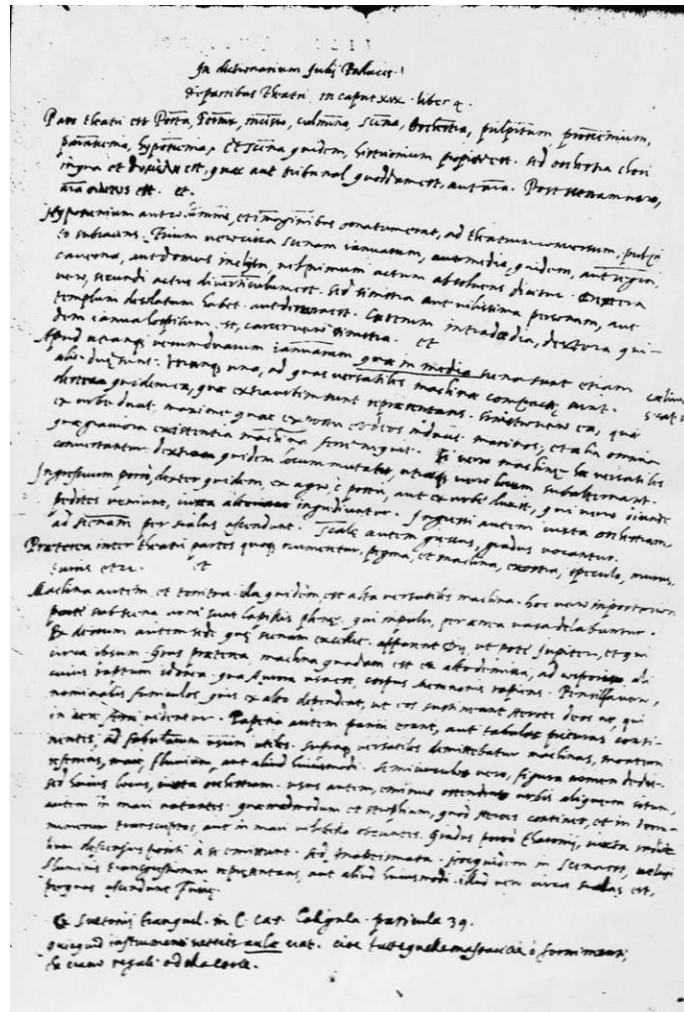 In dictionarium Julij Polucis.
De partibus theatri in caput xix. liber 4.
Pars theatri est Porta, Fornix, culmina, Scena, Orchestra, pulpitum proscenium,
parascenia, hyposcenia, et scena quidem, histrionum propria est. sed orchestra chori
in qua et est, quae aut tribunal quoddam est, aut ara. Post scenam vero,
ara est. et.
Hyposcenium autem et imaginibus ornatum erat, ad theatrum conversum, pulpi
to subiacens. Trium vero circa scenam ianuarum, aut media, quidem, aut regia,
caverna, aut domus nel primum actum absolvens dicitur. Dextera
vero, secundi actus diverticulum est. sed sinistra aut vilissima personam, aut
templum desolatum habet. aut Carcerem in tragoedia, dextera qui-
dem ianua est, carcer vero sinistra. et
Apud utranq. vero duarum ianuarum quae in media scena sunt etiam
aliae duę sunt. utrinq. una, ad quas versatiles machinae compactę sunt.
dextera quidem ea, quae extra urbem sunt repraesentans. sinistra vero ea, quae
ex urbe maxime quae ex portu deos inducit marinos, et alia omnia
quae graviora existentia machina ferre nequit. Si vero machinę hae versatiles
convertantur dextera quidem locum mutat, vero locum subalternant.
Ingressuum porro, dexter quidem, ex agro, è portu, aut ex urbe ducit, qui vero aliunde
pedites veniunt, iuxta alterum ingrediuntur. Ingressi autem iuxta orchestram
ad scenam per scalas ascendunt. Scalę autem gradus vocantur.
Praeterea inter theatri partes quoq. numentur, pegma, et machina, exostra, specula, murus,
turris etc. et
Machina autem, et tonitru. illa quidem est alta versatilis machina. hoc vero in posteriori
parte sub scena utres sunt lapillis plenę. qui inpulsi, per aenea vasa delabuntur.
Ex deorum autem sede, quę scenam excedit. apparent Dij, ut pote Jupiter, et qui
circa ipsum. Grus praeterea, machina quaedam est ex alto demissa, ad
cuius raptum idonea. qua Aurora usa est, corpus Memnonis rapiens. Pensiles vero,
nominabis funiculos, quis ex alto dependent, ut eos sustineant Heroes deos ve, qui
in aere ferri videntur. Tapetia autem panni erant, aut tabulae picturas conti-
nentes, ad fabularum usum utiles. supraq. versatiles demittebatur machinas, montem
ostentans, mare, fluvium, aut aliud huiusmodi. Semicirculus vero, figura nomen dedit.
sed huius locus, iuxta orchestram. usus autem, eminus ostendere urbis aliquem situm,
autem in mari natantes. quaemadmodum et strophium, quod Heroes continet, et in deorum
numerum transcriptos, aut in mari vel bello obeuntes. Gradus porro Charonij, iuxta
descensus positi à se emittunt. sed, Anabesmata. hoc quidem in Scena est, veluti
fluminis transgressionem repraesentans, aut aliud huiusmodi. illud vero circa scalas est,
per quas ascendunt Furię.
Ex Suetonij tranquil. in C. Caes. Caligula. particula 39.
quicquid instrumenti veteris aulae erat. cioè tutte quelle ò fornimenti,
che erano regali. o della corte.